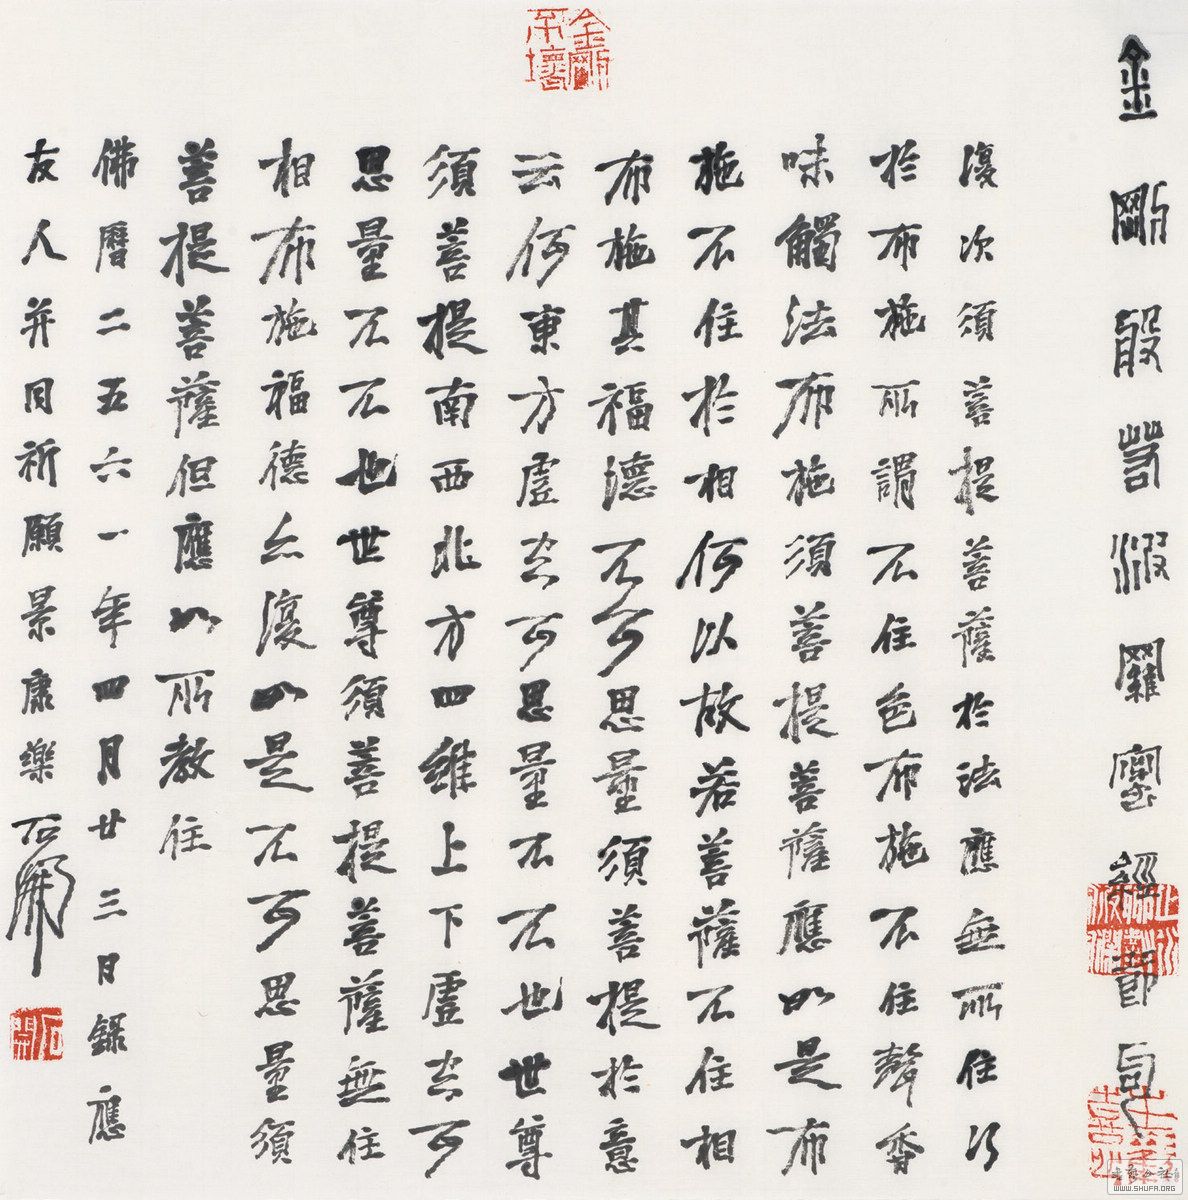 金剛般若波羅蜜經節句
復次須菩提菩薩於法應無所住行
於布施所謂不住色布施不住聲香
味觸法布施須菩提菩薩應如是布
施不住於相何以故若菩薩不住相
布施其福德不可思量須菩提於意
云何東方虛空可思量不不也世尊
須菩提南西北方四維上下虛空可
思量不不也世尊須菩提菩薩無住
相布施福德亦復如是不可思量須
菩提菩薩但應如所教住
佛曆二五六一年四月廿三日錄應
友人并同祈願景康樂石開
金剛不壞
石開
WWW.SHUFA.ORG